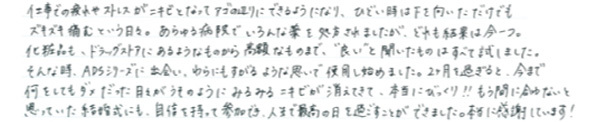 仕事での疲れやストレスがニキビとなってアゴの辺りにできるようになり、ひどい時は下を向いただけでも
ズキズキ痛むという日々。あらゆる病院でいろんな薬を処方されましたが、どれも結果は今一つ。
化粧品も、ドラッグストアにあるようなものから高級なものまで、"良い"と聞いたものはすべて試しました。
そんな時、ADSシリーズに出会い、わらにもすがるような思いで使用し始めました。2ヶ月を過ぎると、今まで
何をしてもダメだった日々がうそのようにみるみるニキビが消えてきて、本当にびっくり!!もう間に合わないと
思っていた結婚式にも、自信を持って参加でき、人生で最高の日を過ごすことができました。本当に感謝しています!